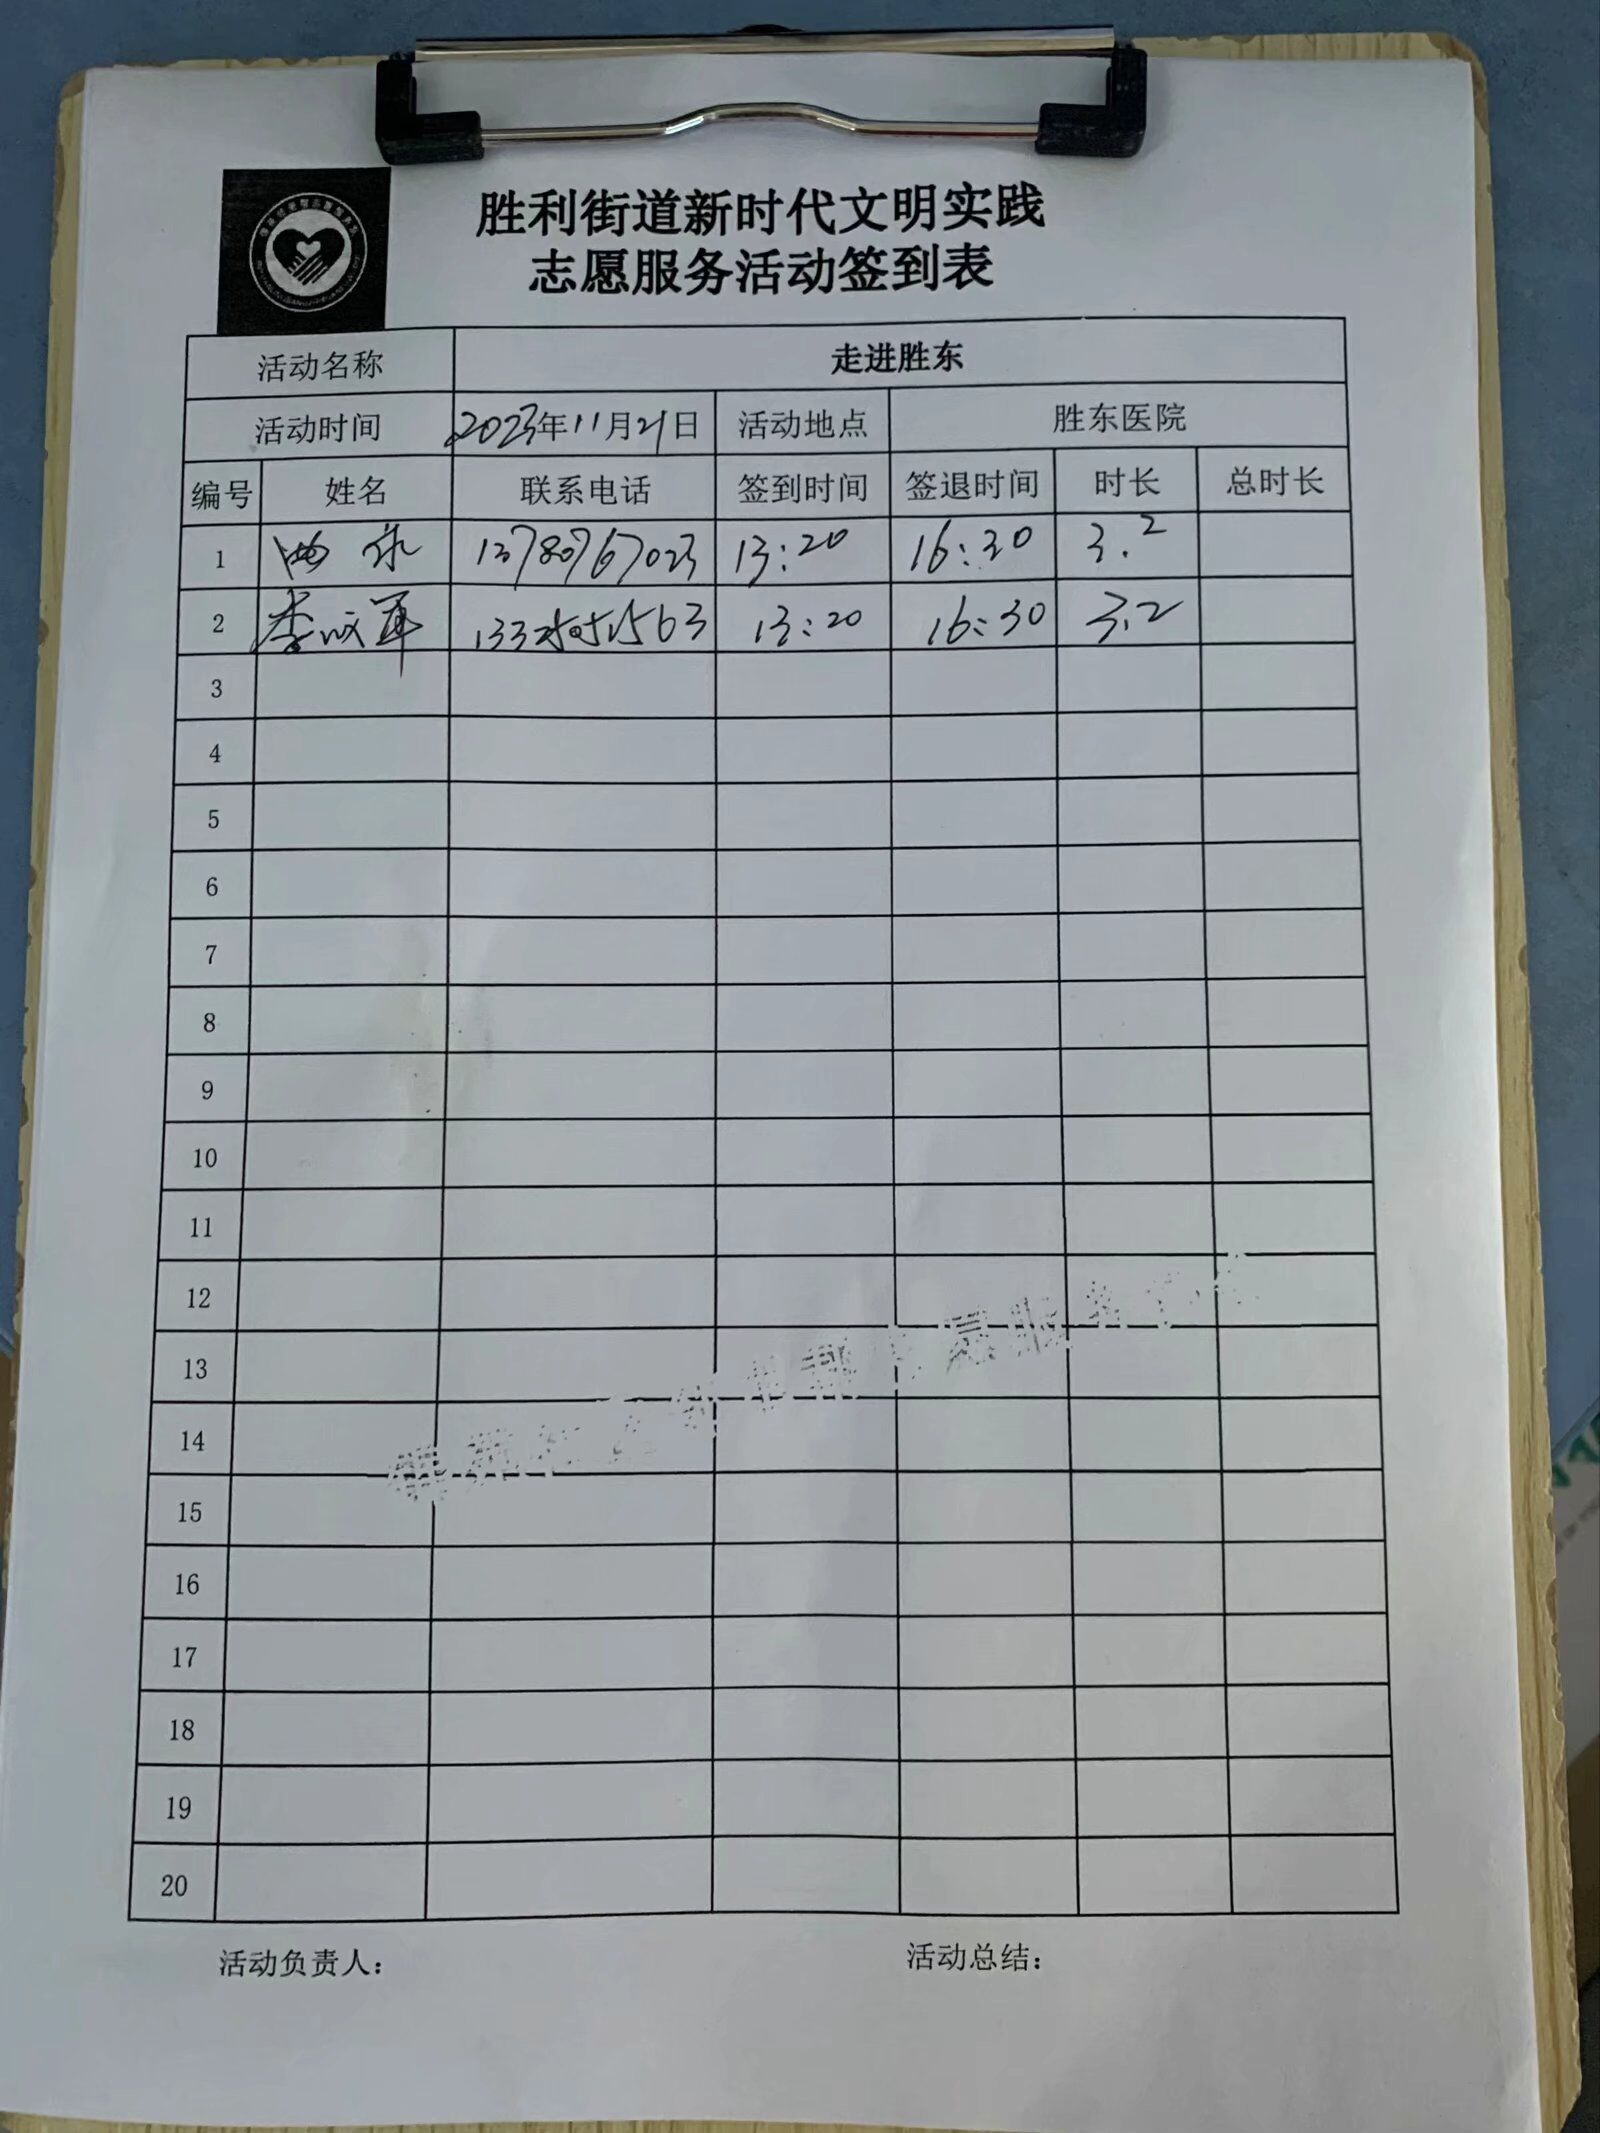 胜利街道新时代文明实践
志愿服务活动签到表
活动名称 走进胜东
活动时间 2023年11月21日 活动地点 胜东医院
编号 姓名 联系电话 签到时间 签退时间 时长 总时长
1 13780767023 13:20 16:30 3.2
2 李 13:20 16:30 3.2
3
4
5
6
7
8
9
10
11
12
13
14
15
16
17
18
19
20
活动负责人: 活动总结: